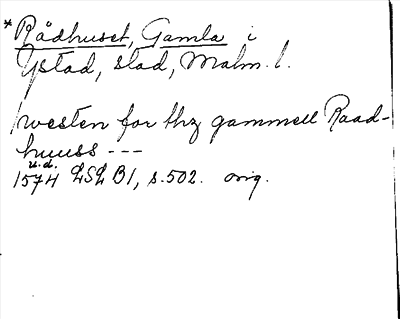 *Rådhuset, Gamla i
Ystad, stad, Malm. l.
westen for thz gammell Raad-
huuss ---
u.d.
1574 LSL B1, s. 502. orig.